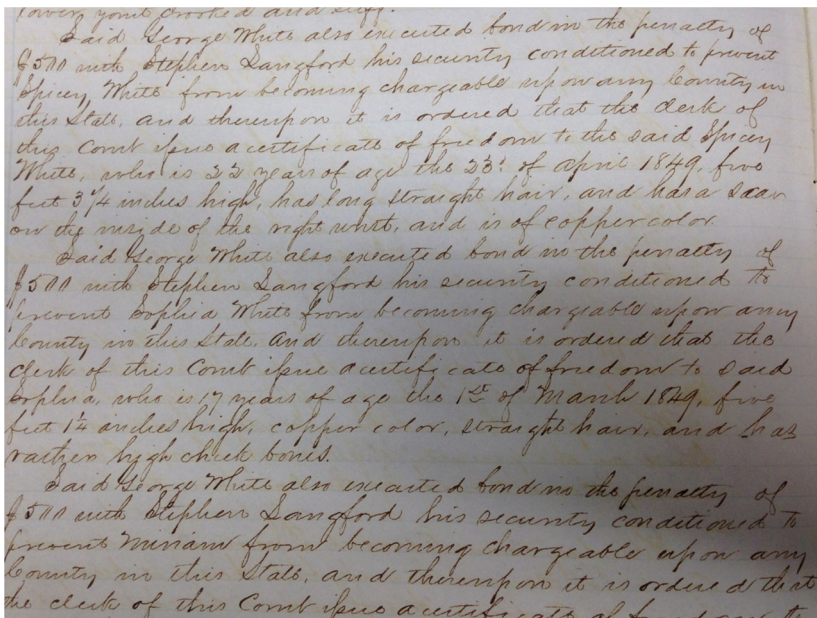 lower joint crooked and stiff.
Said George White also executed bond in the penalty of
$500 with Stephen Langford his security conditioned to prevent
Spicey White from becoming chargeable upon any County in
this State, and thereupon it is ordered that the clerk of
this Court issue a certificate of freedom to the said Spicey
White, who is 22 years of age the 23d of April 1849, five
feet 3 3/4 inches high, has long straight hair, and has a scar
on the inside of the right wrist, and is of copper color.
Said George White also executed bond in the penalty of
$500 with Stephen Langford his security conditioned to
prevent Sophia White from becoming chargeable upon any
County in this State. And thereupon it is ordered that the
clerk of this Court issue a certificate of freedom to said
Sophia, who is 17 years of age the 1st of March 1849, five
feet 1 1/4 inches high, copper color, straight hair, and has
rather high cheek bones.
Said George White also executed bond in the penalty of
$500 with Stephen Langford his security conditioned to
prevent Miriam from becoming chargeable upon any
County in this State, and thereupon it is ordered that
the clerk of this Court issue a certificate of freedom to